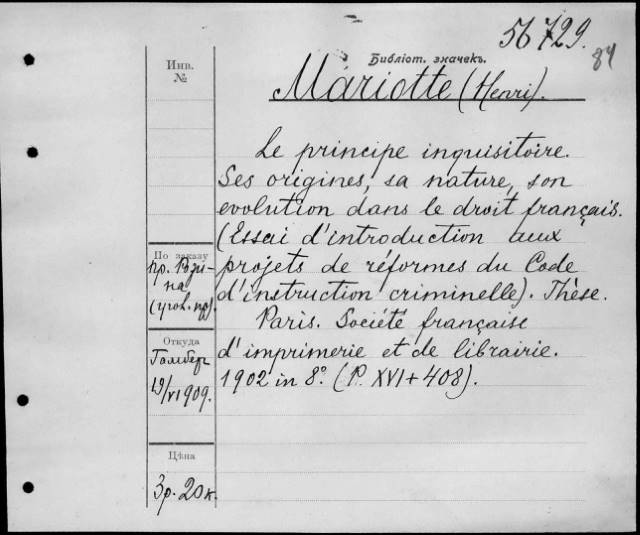 56729.
84
Библіот. значекъ.
Mariotte (Henri).
Инв.
№
Le principe inquisitoire.
Ses origines, sa nature, son
evolution dans le droit français.
(Essai d'introduction aux
projets de réformes du Code
d'instruction criminelle). Thèse.
Paris. Société française
d'imprimerie et de librairie.
1902 in 8°. (P. XVI + 408).
По заказу
пр. Рози-
на
(угол. пр).
Откуда
Гамбер
19/VI 1909.
Цѣна
3 р. 20 к.